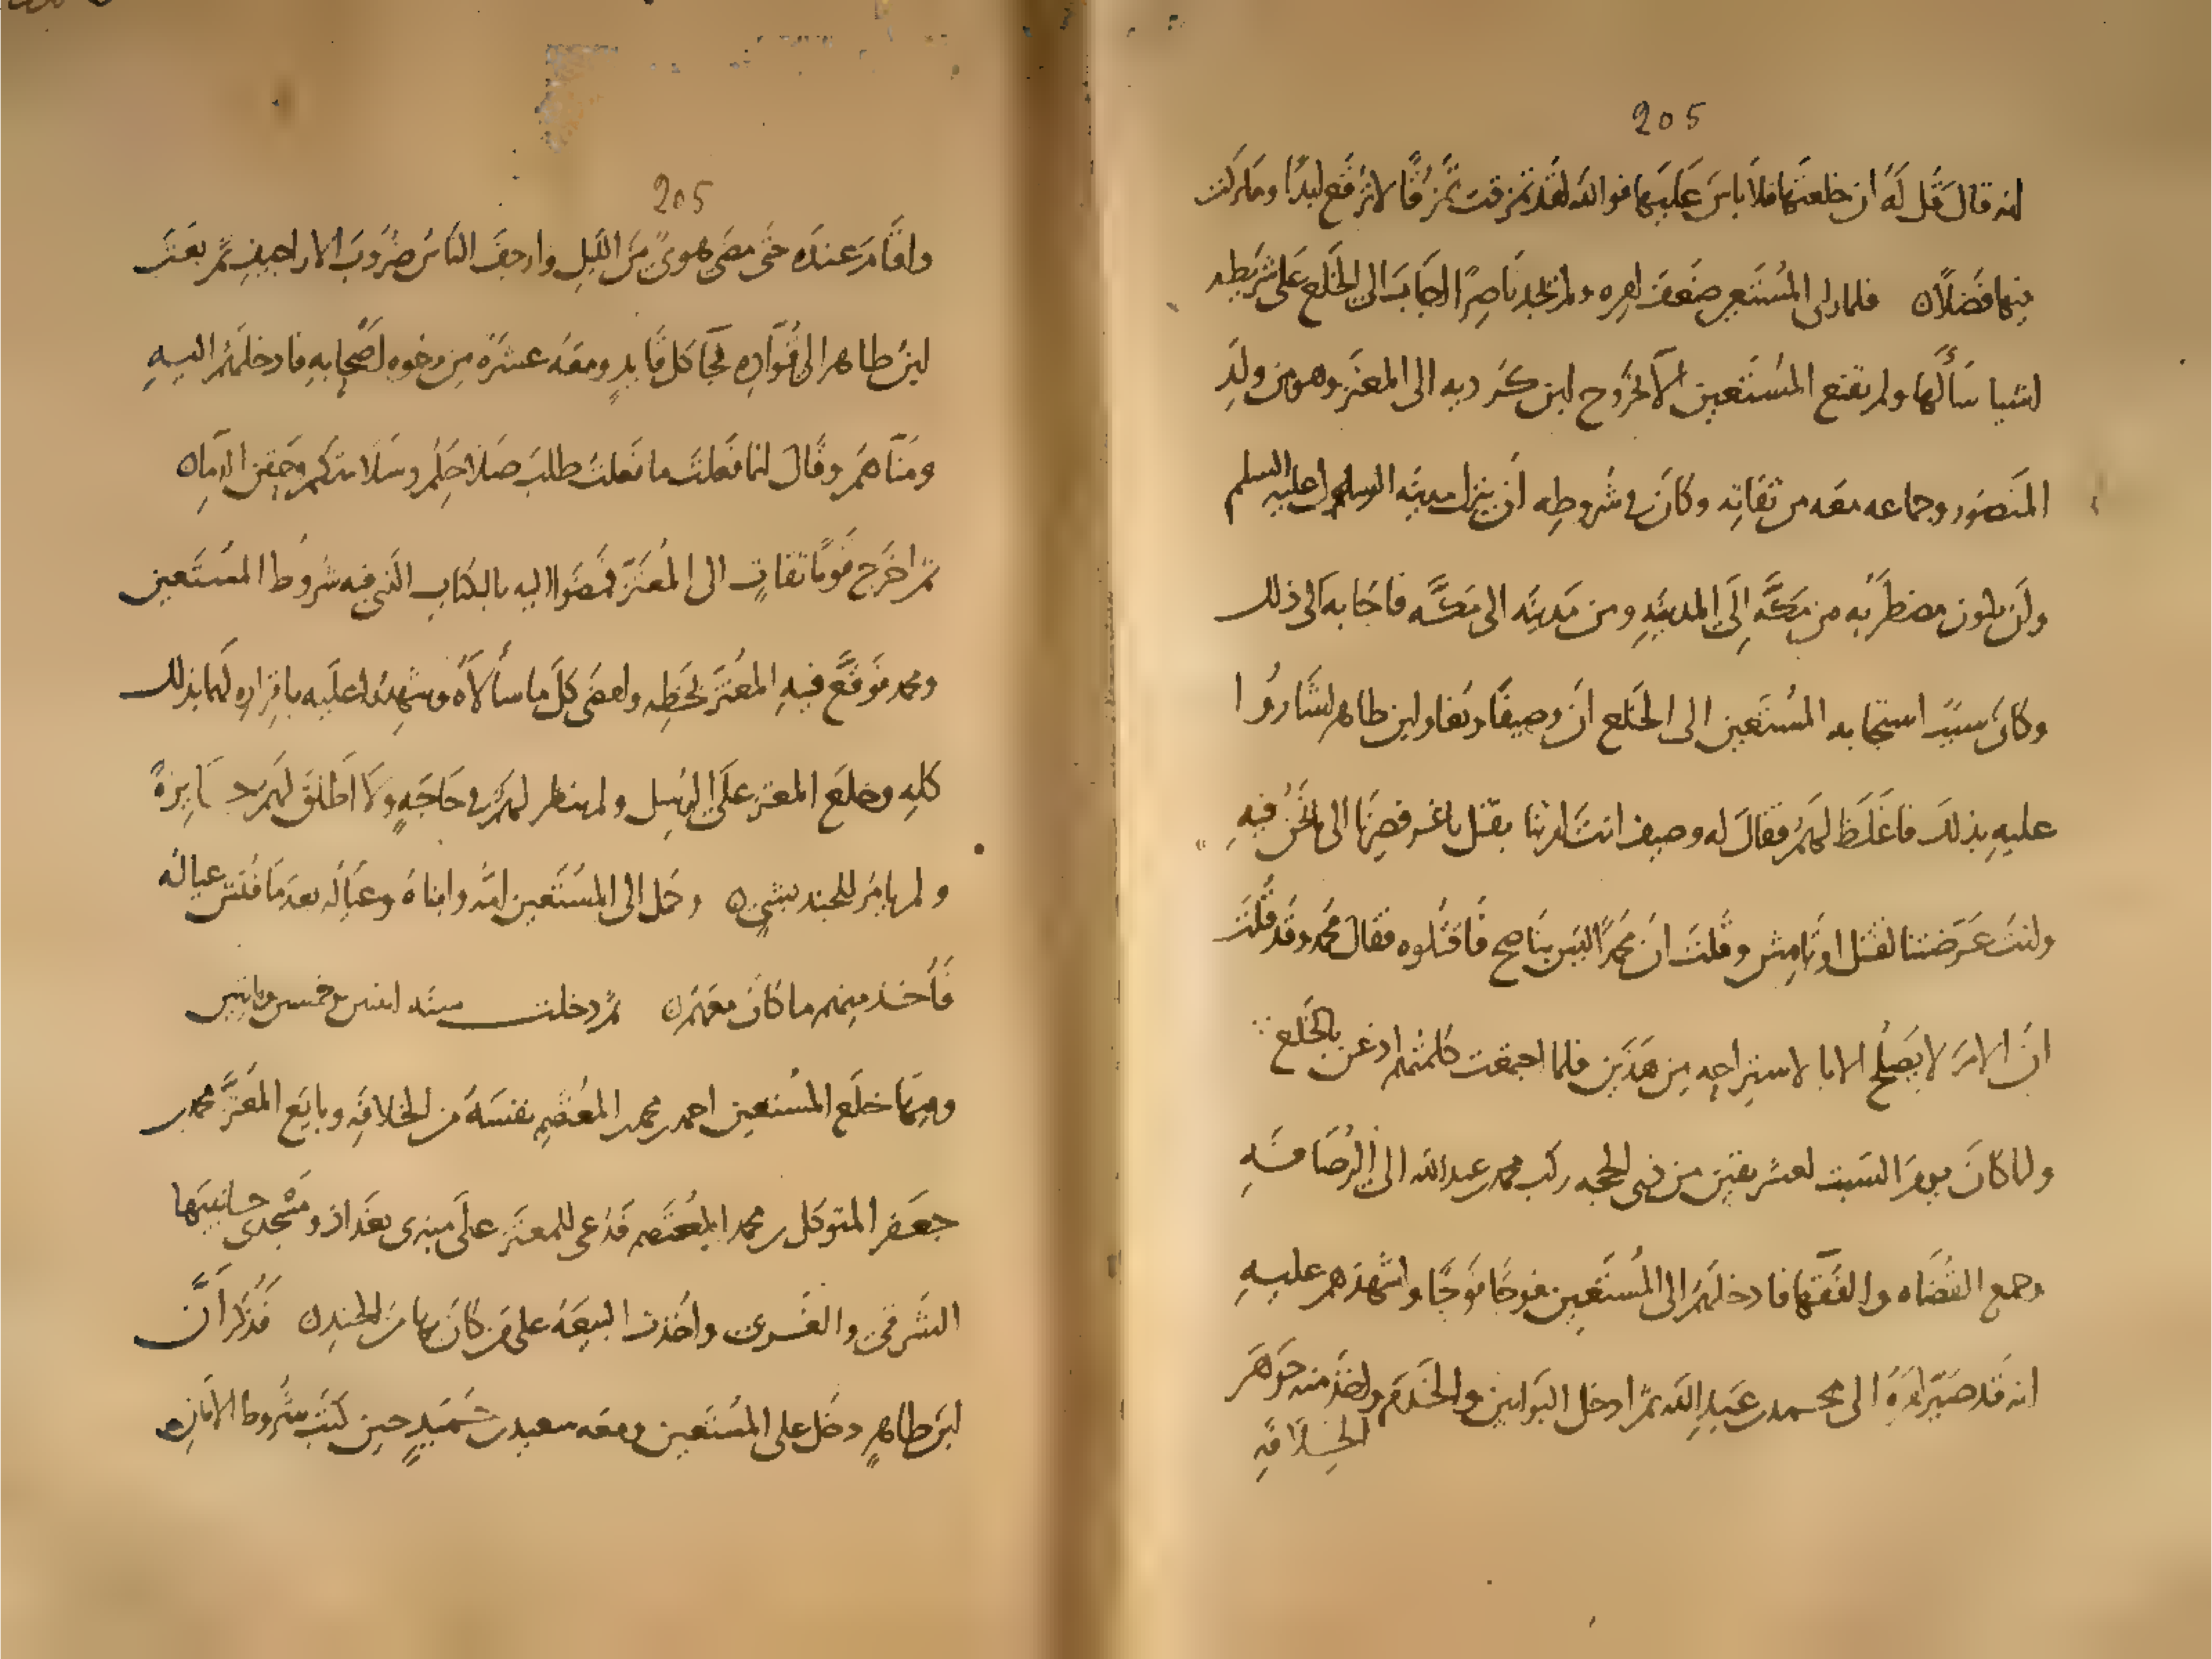 205
انه قال قل له ان خلعتها فلا باس عليها فوالله لقد تمزقت تمزقا لا يرقع ابدا وما تركت
فيها فضلا فلما راى المستعين ضعف امره ولم يجد ناصرا اجاب الى الخلع على شريطه
اشيا سألها ولم يقنع المستعين الا بخروج ابن كرديه الى المعتز وهو من ولد
المنصور وجماعه معه من ثقاته وكان في شروطه ان ينزل مدينه الرسول عليه السلم
وان يكون مضطربه من مكه الى المدينه ومن مدينه الى مكه فاجابه الى ذلك
وكان سبب استجابه المستعين الى الخلع ان وصيفا وبغا وابن طاهر اشاروا
عليه بذلك فاغلظ لهم فقال له وصيف انت امرتنا بقتل باغر فصرنا الى ما نحن فيه
وانت عرضتنا لقتل اوتامش وقلت ان محمدا ليس بناصح فاقتلوه فقال محمد وقد قلت
ان الامر لا يصلح الا بالاستراحه من هذين فلما اجمعت كلمتهم اذعن بالخلع
ولما كان يوم السبت لعشر بقين من ذي الحجه ركب محمد بن عبد الله الى الرصافه
وجمع القضاه والفقها فادخلهم الى المستعين فوجا فوجا واشهدهم عليه
انه قد صير امره الى محمد بن عبد الله ثم ادخل البوابين والخدم واخذ منه جوهر
الخلافه
205
واقام عنده حتى مضى هوى من الليل وارجف الناس ضروب الاراجيف ثم بعث
ابن طاهر الى قواده فجا كل قايد ومعه عشره من وجوه اصحابه فادخلهم اليه
ومناهم وقال انما فعلت ما فعلت طلب صلاحكم وسلامتكم وحقن الدما
ثم اخرج قوما ثقات الى المعتز فمضوا اليه بالكتاب الذي فيه شروط المستعين
ومحمد فوقع فيه المعتز بخطه وامضى كل ما سألاه وشهدوا عليه باقراره لهما بذلك
كله وخلع المعتز على الرسل ولم ينظر لهم في حاجه ولا اطلق لهم جايزه
ولم يامر للجند بشي وحمل الى المستعين امه وابناه وعياله بعد ما فتش عياله
فأخذ منهم ما كان معهم ثم دخلت سنه اثنين وخمسين ومايتين
وفيها خلع المستعين احمد بن محمد المعتصم نفسه من الخلافه وبايع المعتز محمد بن
جعفر المتوكل بن محمد المعتصم فدعي للمعتز على منبري بغداذ ومسجدي جانبيها
الشرقي والغربي واخذت البيعه على من كان بها من الجند فذكر ان
ابن طاهر دخل على المستعين ومعه سعيد بن حميد حين كتب شروط الامان